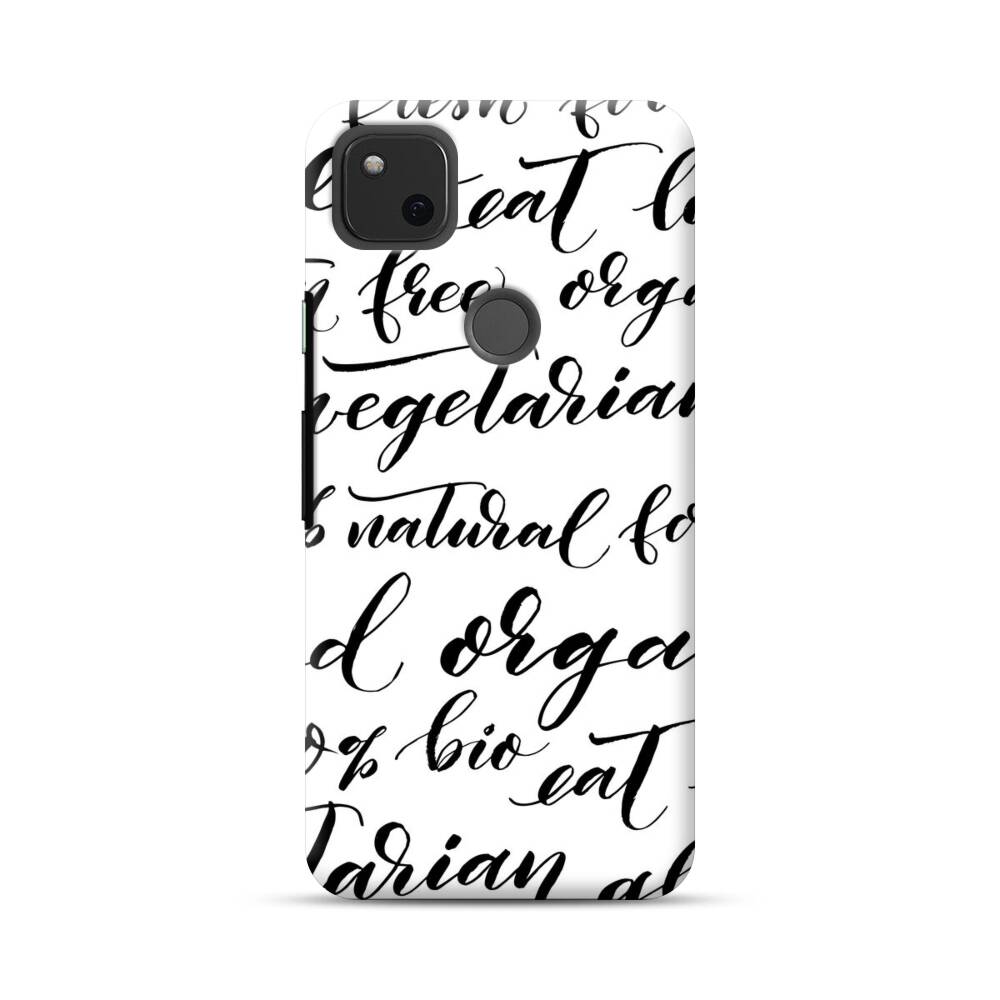 fresh
eat
free orga
vegetarian
% natural fo
d orga
0% bio
eat
tarian